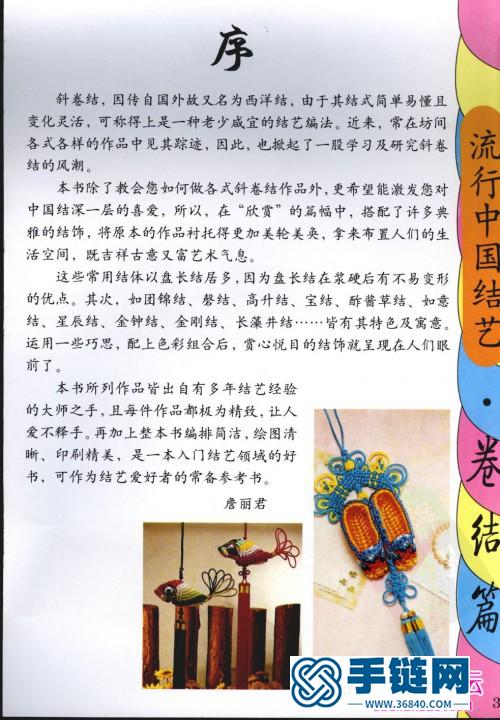 序
斜卷结，因传自国外故又名为西洋结，由于其结式简单易懂且
变化灵活，可称得上是一种老少咸宜的结艺编法。近来，常在坊间
各式各样的作品中见其踪迹，因此，也掀起了一股学习及研究斜卷
结的风潮。
本书除了教会您如何做各式斜卷结作品外，更希望能激发您对
中国结深一层的喜爱，所以，在“欣赏”的篇幅中，搭配了许多典
雅的结饰，将原本的作品衬托得更加美轮美奂，拿来布置人们的生
活空间，既吉祥古意又富艺术气息。
这些常用结体以盘长结居多，因为盘长结在浆硬后有不易变形
的优点。其次，如团锦结、磬结、高升结、宝结、酢酱草结、如意
结、星辰结、金钟结、金刚结、长藻井结……皆有其特色及寓意。
运用一些巧思，配上色彩组合后，赏心悦目的结饰就呈现在人们眼
前了。
本书所列作品皆出自有多年结艺经验
的大师之手，且每件作品都极为精致，让人
爱不释手。再加上整本书编排简洁，绘图清
晰、印刷精美，是一本入门结艺领域的好
书，可作为结艺爱好者的常备参考书。
詹丽君
流行中国结艺·卷结篇
手链网
www.36840.com
3